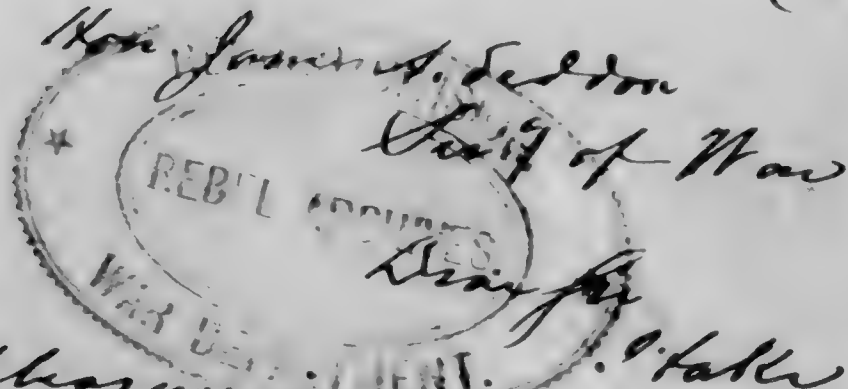 Hon James A. Seddon
Sec'y of War
REB'L ARCHIVES
WAR DEPARTMENT.
Dear Sir
I take